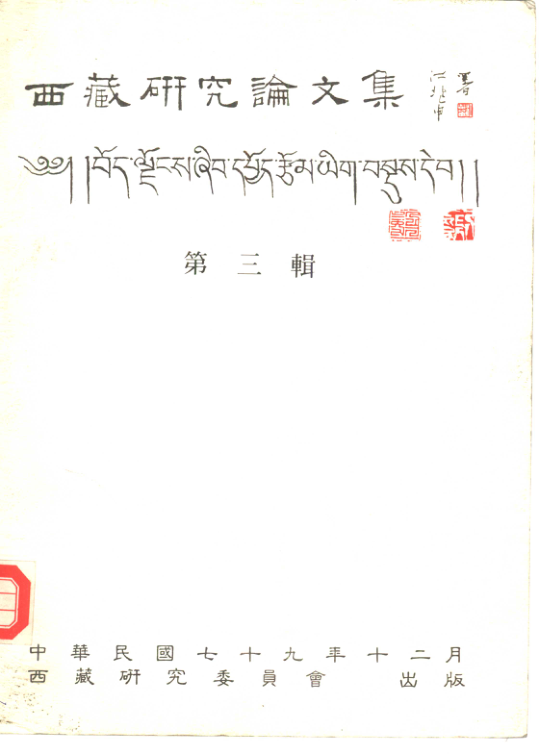 西藏研究論文集 江兆申署
༄༅། །བོད་ལྗོངས་ཞིབ་དཔྱོད་རྩོམ་ཡིག་བསྡུས་དེབ། །
第三輯
中華民國七十九年十二月
西藏研究委員會 出版